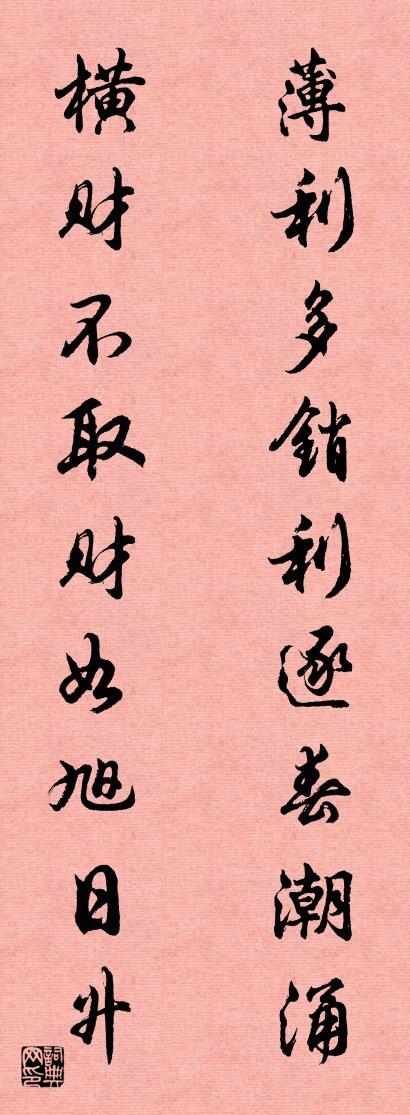 薄利多銷利逐春潮涌
横财不取财如旭日升
詞典网印